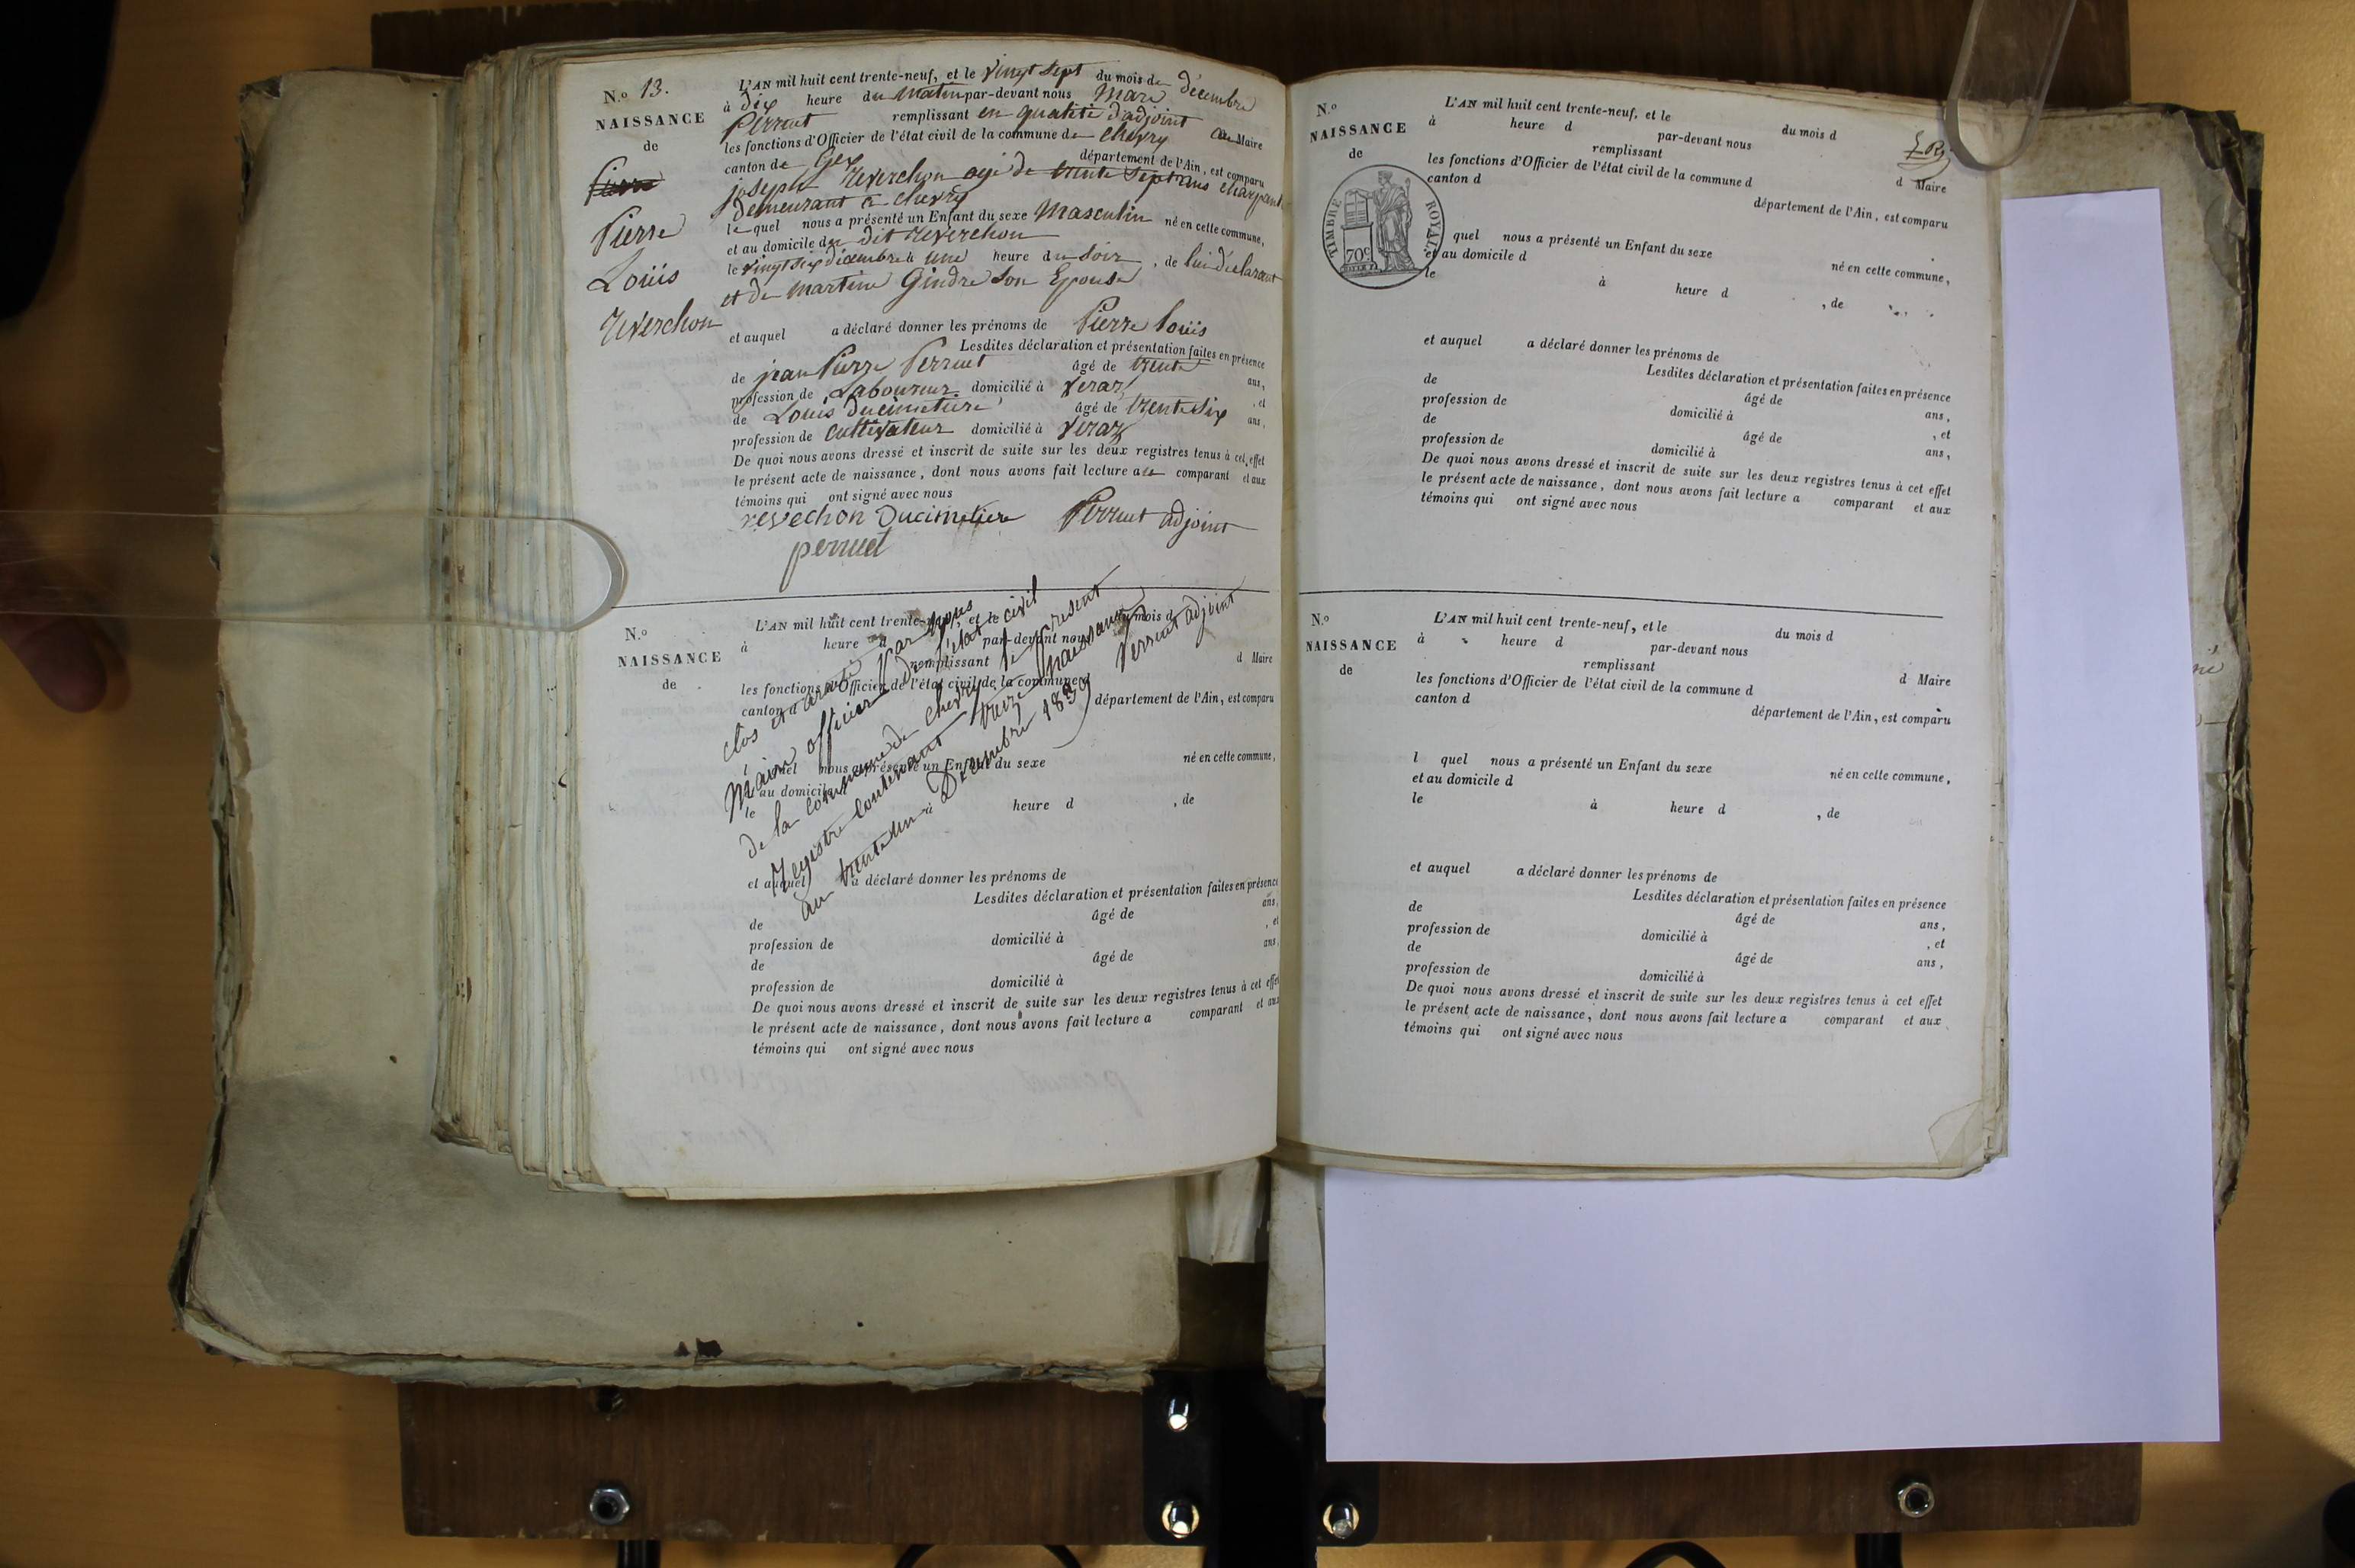 N.o 13.
NAISSANCE
de
Pierre
Pierre
Louis
Reverchon
L'AN mil huit cent trente-neuf, et le vingt sept du mois de décembre
à dix heure du matin par-devant nous Marc
Perruet remplissant en qualité d'adjoint au Maire
les fonctions d'Officier de l'état civil de la commune de chevry
canton de Gex département de l'Ain, est comparu
joseph Reverchon agé de trente sept ans charpentier
demeurant à chevry
le quel nous a présenté un Enfant du sexe Masculin né en cette commune,
et au domicile du dit Reverchon
le vingt six décembre à une heure du soir, de lui déclarant
et de martine Gindre son Epouse
et auquel a déclaré donner les prénoms de Pierre louis
Lesdites déclaration et présentation faites en présence
de jean Pierre Perruet âgé de trente ans,
profession de Laboureur domicilié à Veraz, et
de Louis Ducimetière âgé de trente six ans,
profession de cultivateur domicilié à Veraz
De quoi nous avons dressé et inscrit de suite sur les deux registres tenus à cet effet
le présent acte de naissance, dont nous avons fait lecture au comparant et aux
témoins qui ont signé avec nous
revechon Ducimetière Perruet adjoint
perruet
N.o
NAISSANCE
de
L'AN mil huit cent trente-neuf, et le du mois d
à heure d par-devant nous
remplissant d Maire
les fonctions d'Officier de l'état civil de la commune d
canton d département de l'Ain, est comparu
l quel nous a présenté un Enfant du sexe né en cette commune,
et au domicile d
le à heure d , de
et auquel a déclaré donner les prénoms de
Lesdites déclaration et présentation faites en présence
de âgé de ans,
profession de domicilié à , et
de âgé de ans,
profession de domicilié à
De quoi nous avons dressé et inscrit de suite sur les deux registres tenus à cet effet
le présent acte de naissance, dont nous avons fait lecture a comparant et aux
témoins qui ont signé avec nous
clos et arreté par nous
Maire officier de l'état civil
de la commune de chevry le present
Registre contenant treize naissances
au trente un Décembre 1839
Perruet adjoint
N.o
NAISSANCE
de
TIMBRE ROYAL
70c
L'AN mil huit cent trente-neuf, et le du mois d
à heure d par-devant nous
remplissant d Maire
les fonctions d'Officier de l'état civil de la commune d
canton d département de l'Ain, est comparu
quel nous a présenté un Enfant du sexe né en cette commune,
et au domicile d
le à heure d , de
et auquel a déclaré donner les prénoms de
Lesdites déclaration et présentation faites en présence
de âgé de ans,
profession de domicilié à , et
de âgé de ans,
profession de domicilié à
De quoi nous avons dressé et inscrit de suite sur les deux registres tenus à cet effet
le présent acte de naissance, dont nous avons fait lecture a comparant et aux
témoins qui ont signé avec nous
N.o
NAISSANCE
de
L'AN mil huit cent trente-neuf, et le du mois d
à heure d par-devant nous
remplissant d Maire
les fonctions d'Officier de l'état civil de la commune d
canton d département de l'Ain, est comparu
l quel nous a présenté un Enfant du sexe né en cette commune,
et au domicile d
le à heure d , de
et auquel a déclaré donner les prénoms de
Lesdites déclaration et présentation faites en présence
de âgé de ans,
profession de domicilié à , et
de âgé de ans,
profession de domicilié à
De quoi nous avons dressé et inscrit de suite sur les deux registres tenus à cet effet
le présent acte de naissance, dont nous avons fait lecture a comparant et aux
témoins qui ont signé avec nous